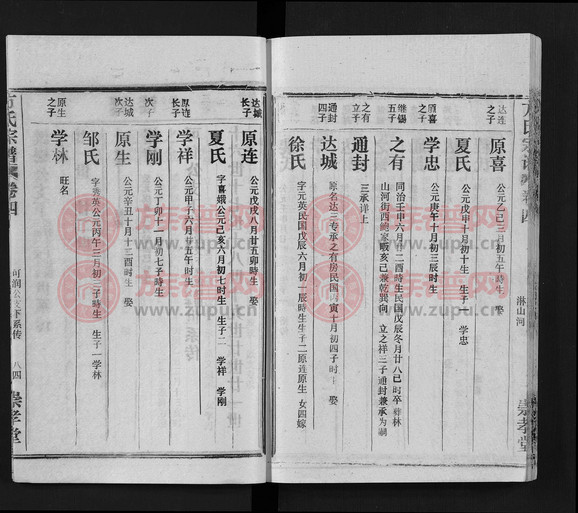 达连
之子
原喜
公元乙巳三月初五午時生 娶
夏氏
公元戊申十月初十士生 生子一 学忠
原喜
之子
学忠
公元庚午十月初三辰時生
继锡
五子
之有
同治壬申六月廿二酉時生民国戊辰冬月廿八巳时卒 葬林
山河街西鲍家畈亥巳兼乾巽向 立之祥三子通封兼承为嗣
之有
立子
通封
三承详上
通封
四子
达城
原名达三专承之有房民国丙寅十月初四子时 娶
徐氏
字元英民国戊辰六月初一辰時生生子二原連原生 女四嫁
淋山河
崇孝堂
达城
长子
原连
公元戊戌八月廿五卯時生 娶
夏氏
字喜娥公元己亥六月初七时生 生子二 学祥 学刚
原连
长子
学祥
公元甲子六月廿五午时生
次子
学刚
公元丁卯十一月初七子時生
达城
次子
原生
公元辛丑十月十二酉時生 娶
邹氏
字 英公元丙午三月初二子時生 生子一学林
原生
之子
学林
旺名
方氏宗谱
卷四
可润公支下系传
八四
崇孝堂
族谱网
族谱网